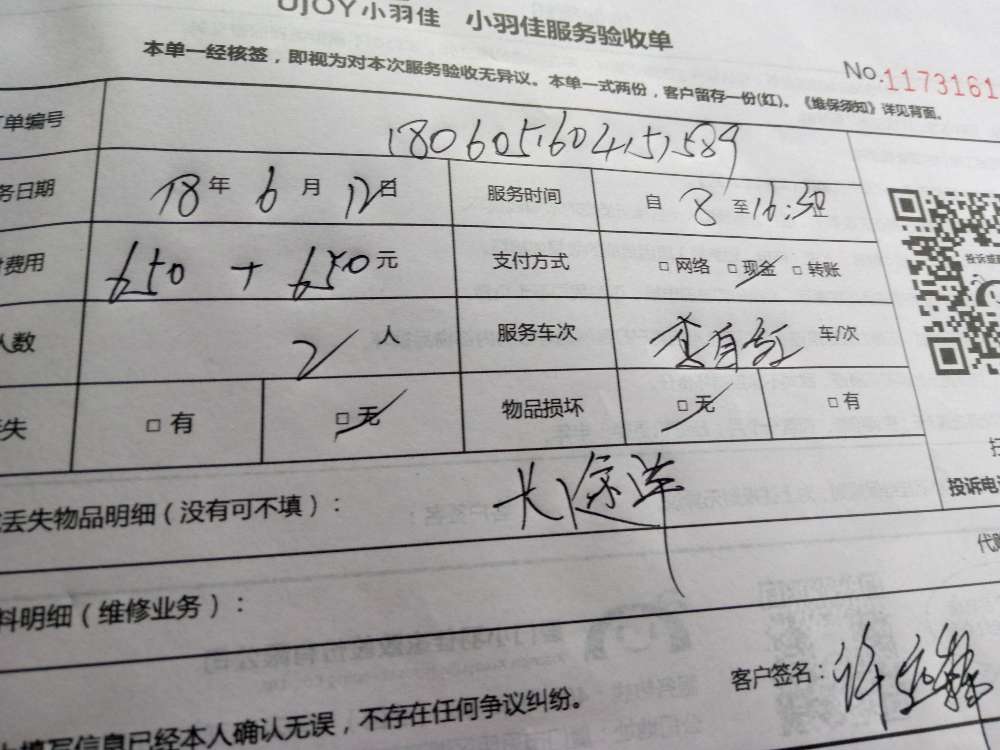 UJOY小羽佳 小羽佳服务验收单
本单一经核签，即视为对本次服务验收无异议。本单一式两份，客户留存一份(红)。《维保须知》详见背面。
No.1173161
单编号 180605160415,589
务日期 18年6月12日 服务时间 自8至16:30
费用 650+650元 支付方式 □网络 □现金 □转账
人数 2人 服务车次 李自红 车/次
失 □有 □无 物品损坏 □无 □有
投诉电
丢失物品明细（没有可不填）： 长途车
代
料明细（维修业务）：
客户签名：
填写信息已经本人确认无误，不存在任何争议纠纷。